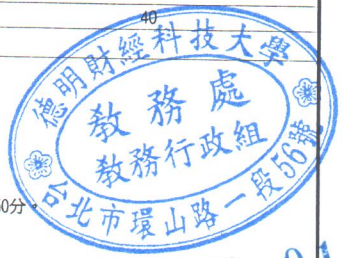 40
德明財經科技大學
教務處
教務行政組
台北市環山路一段56號
0分。